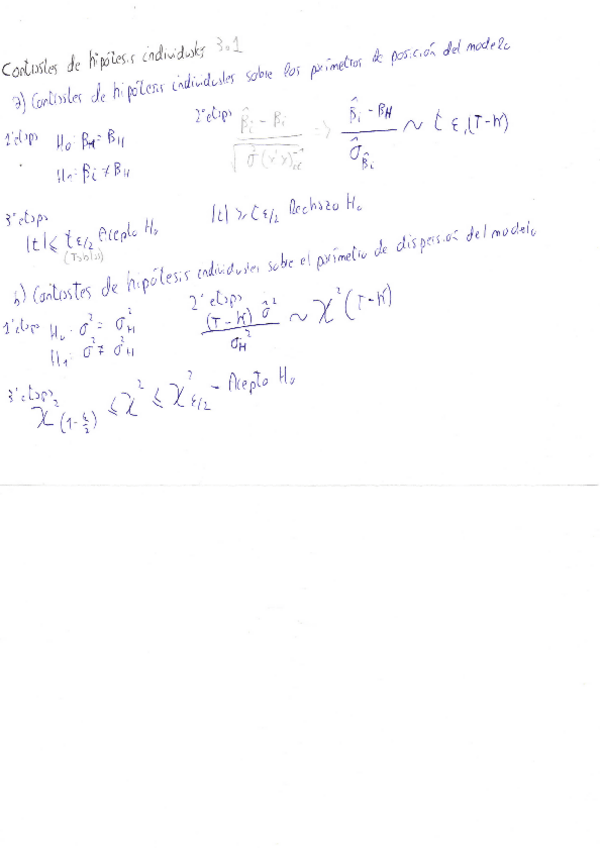 Contrastes de hipótesis individuales 3.1
a) Contrastes de hipótesis individuales sobre los parámetros de posición del modelo
1ª etapa H₀: βᵢ = β_H
H₁: βᵢ ≠ β_H
2ª etapa (β̂ᵢ - βᵢ) / √(σ̂²(x'x)⁻¹ᵢᵢ) => (β̂ᵢ - β_H) / σ̂_β̂ᵢ ~ t ε, (T-K)
3ª etapa
|t| ≤ t ε/2 Acepto H₀
(Tablas)
|t| > t ε/2 Rechazo H₀
b) Contrastes de hipótesis individuales sobre el parámetro de dispersión del modelo
1ª etapa H₀: σ² = σ²_H
H₁: σ² ≠ σ²_H
2ª etapa
(T-K) σ̂² / σ_H² ~ χ² (T-K)
3ª etapa
χ² (1-ε/2) ≤ χ² ≤ χ² ε/2 - Acepto H₀